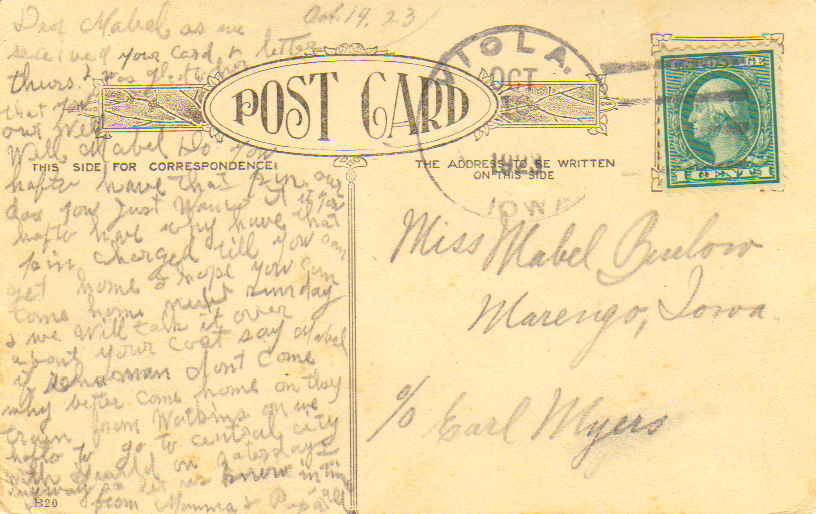 Oct. 19, 23
Dea Mabel as we
received your card & letter
thurs. & was glad to hear
that you
are well
Well Mabel Do you
hafto have that pin our
das you Just Wanted it if you
hafto have why have that
pin charged till you can
get home I hope you can
come home next sunday
& we will talk it over
about your coat say Mabel
if man dont come
why better come home on they
train from Watkins on we
hafto go to central city
with on Saterdays
anyway so let us know in time
from Mamma & Papa all
POST CARD
THIS SIDE FOR CORRESPONDENCE
THE ADDRESS TO BE WRITTEN
ON THIS SIDE
VIOLA.
OCT
IOWA
U.S. POSTAGE
Miss Mabel Buelow
Marengo, Iowa.
c/o Earl Myers
B20